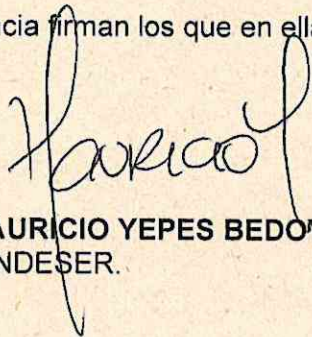 cia firman los que en ella
Mauricio Y
AURICIO YEPES BEDO
NDESER.